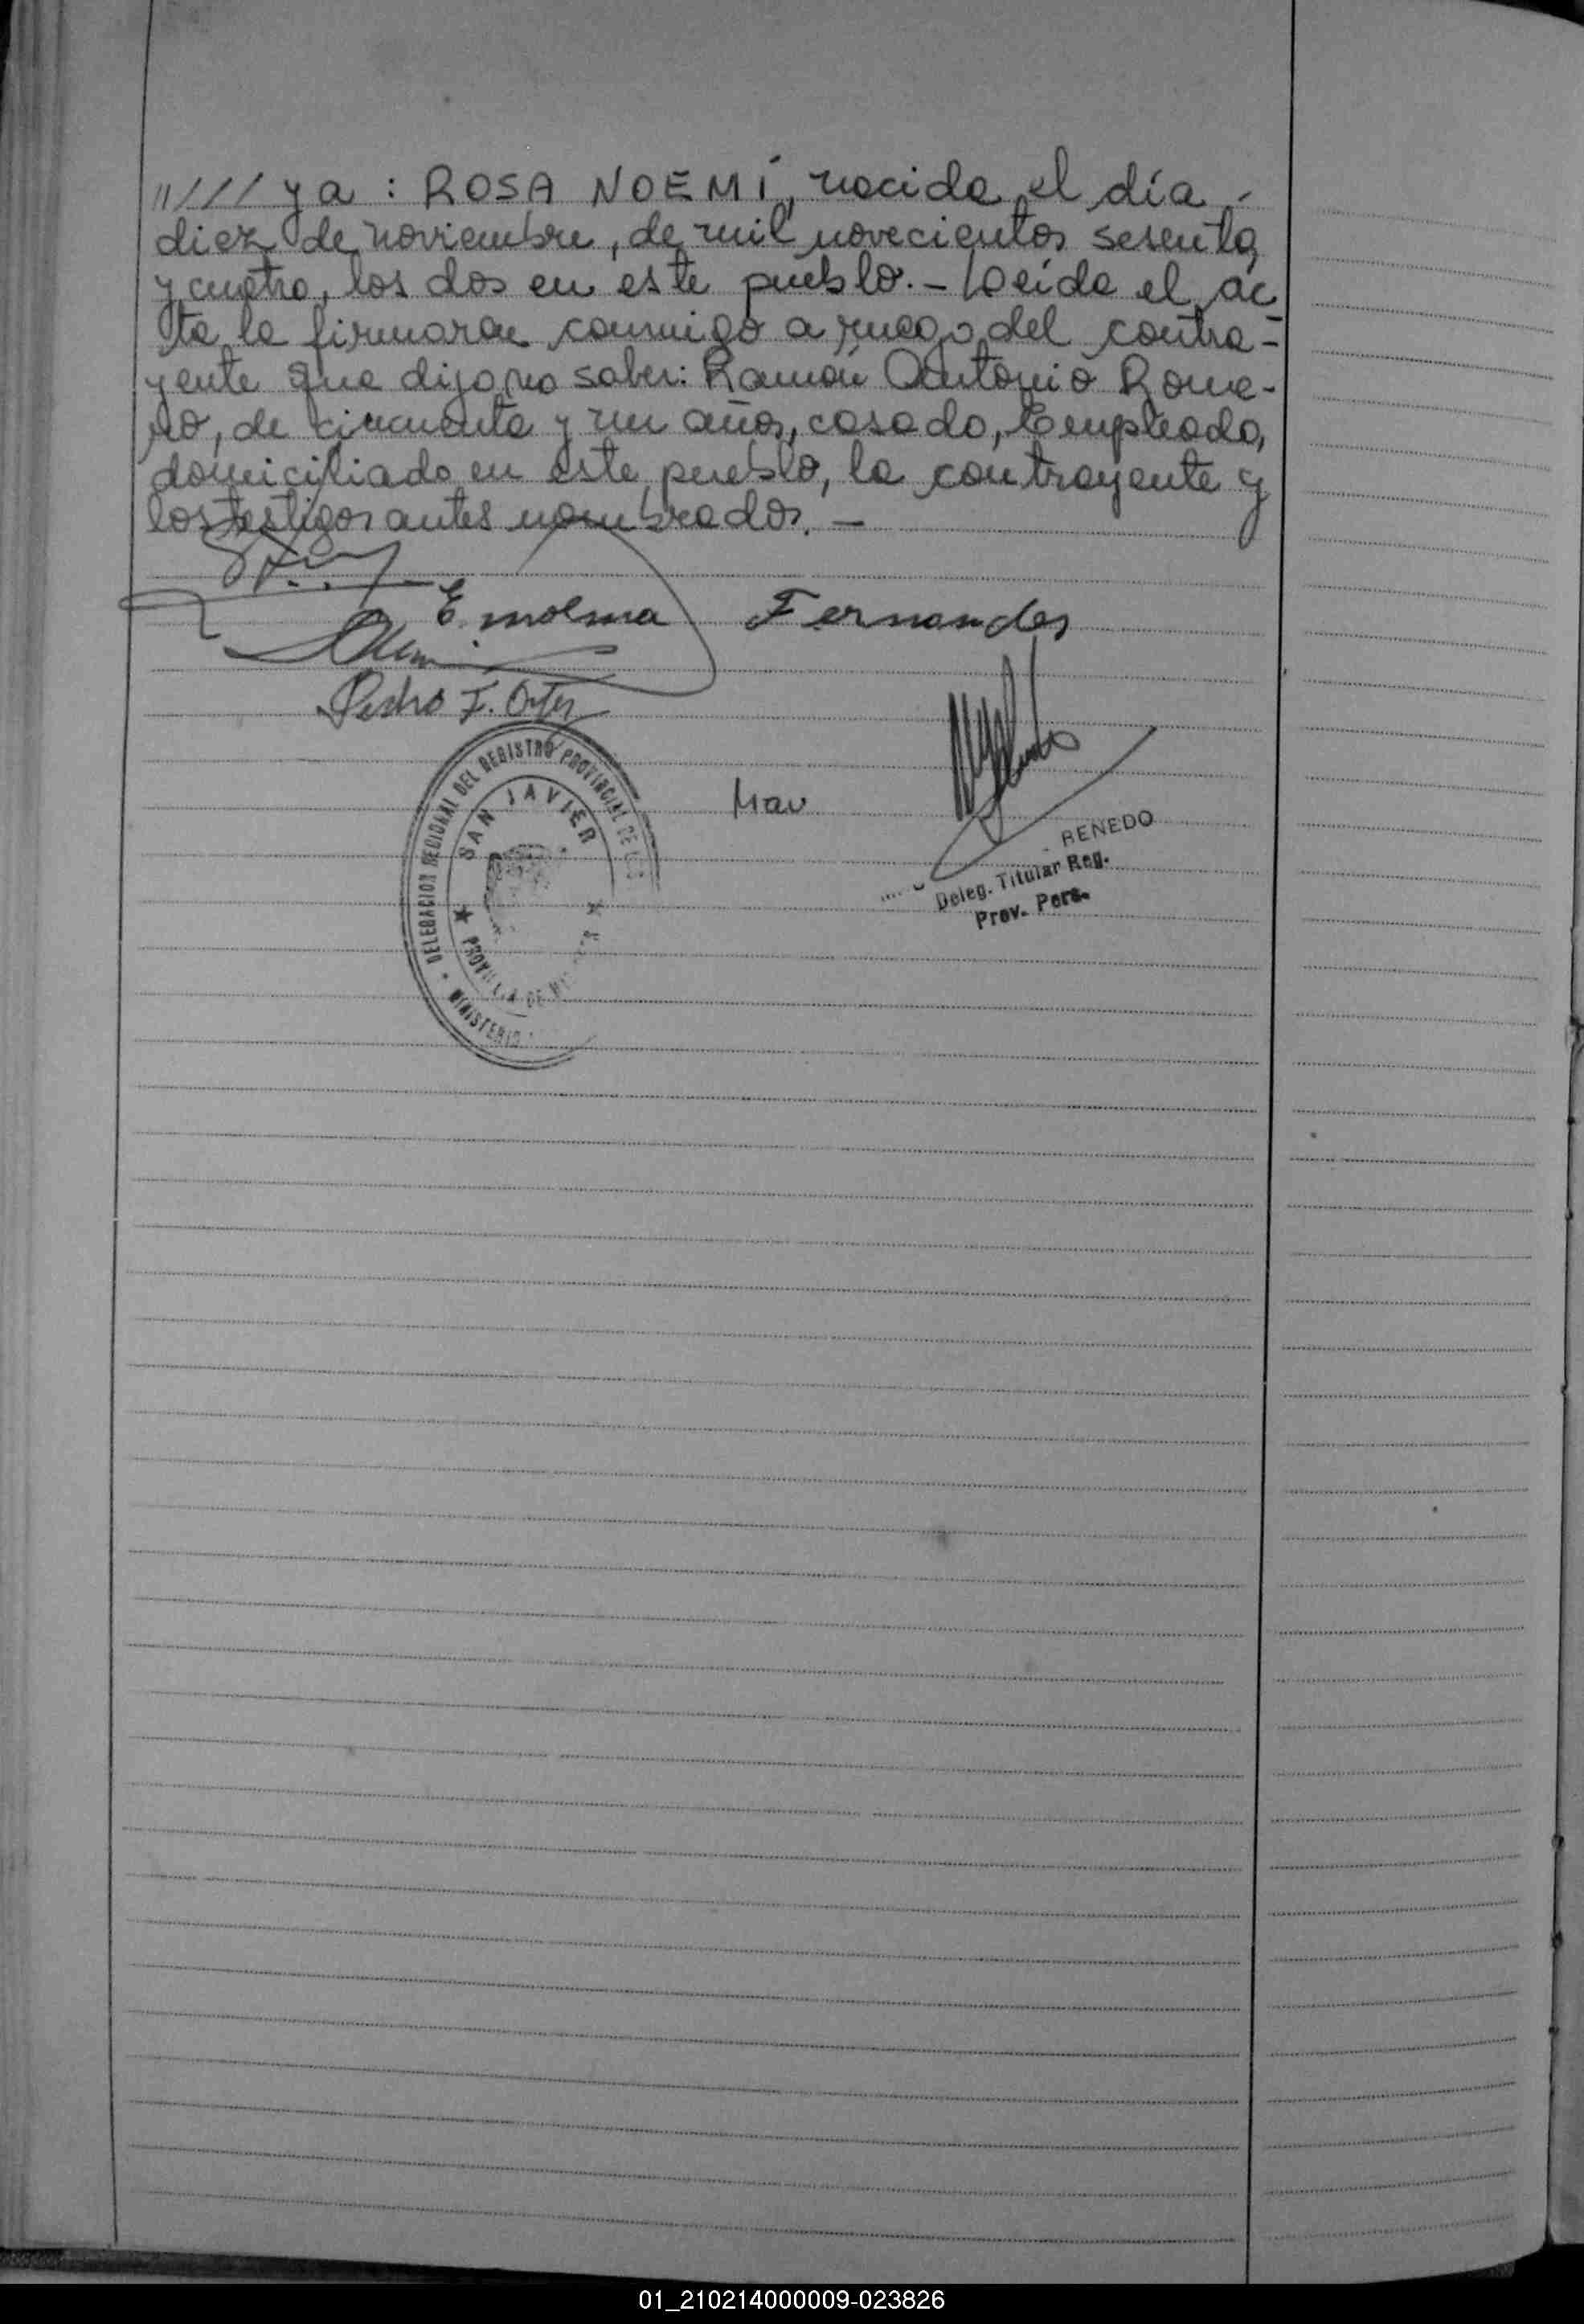 //// y a : ROSA NOEMÍ, nacida el día -
diez de noviembre, de mil novecientos sesenta
y cuatro, los dos en este pueblo. - Leída el ac
ta la firmaron conmigo a ruego del contra-
yente que dijo no saber: Ramón Antonio Rome-
ro, de cincuenta y un años, casado, Empleado,
domiciliado en este pueblo, la contrayente y
los testigos antes nombrados. -
E. molma Fernandes
Pedro F.
DELEGACION REGIONAL DEL REGISTRO PROVINCIAL DE LAS
SAN JAVIER
PROVINCIA DE
MINISTERIO
RENEDO
Deleg. Titular Reg.
Prov. Pers.
01_210214000009-023826